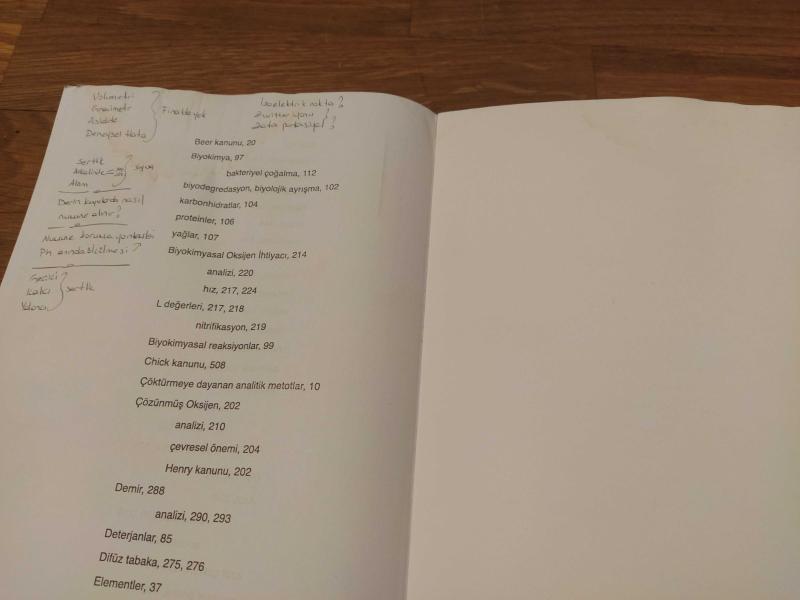 Volumetri
Gravimetri
Deneysel Hata
İzoelektrik nokta?
Zwitter iyonu?
Zeta potansiyel?
Beer kanunu, 20
Biyokimya, 97
bakteriyel çoğalma, 112
biyodegredasyon, biyolojik ayrışma, 102
karbonhidratlar, 104
proteinler, 106
yağlar, 107
Biyokimyasal Oksijen İhtiyacı, 214
analizi, 220
hız, 217, 224
L değerleri, 217, 218
nitrifikasyon, 219
Biyokimyasal reaksiyonlar, 99
Chick kanunu, 508
Çöktürmeye dayanan analitik metotlar, 10
Çözünmüş Oksijen, 202
analizi, 210
çevresel önemi, 204
Henry kanunu, 202
Demir, 288
analizi, 290, 293
Deterjanlar, 85
Difüz tabaka, 275, 276
Elementler, 37
Sertlik
Alkalinite
Derin kuyulardan nasıl
numune alınır?
Numune koruma yöntemleri
Geçici
Kalıcı
sertlik